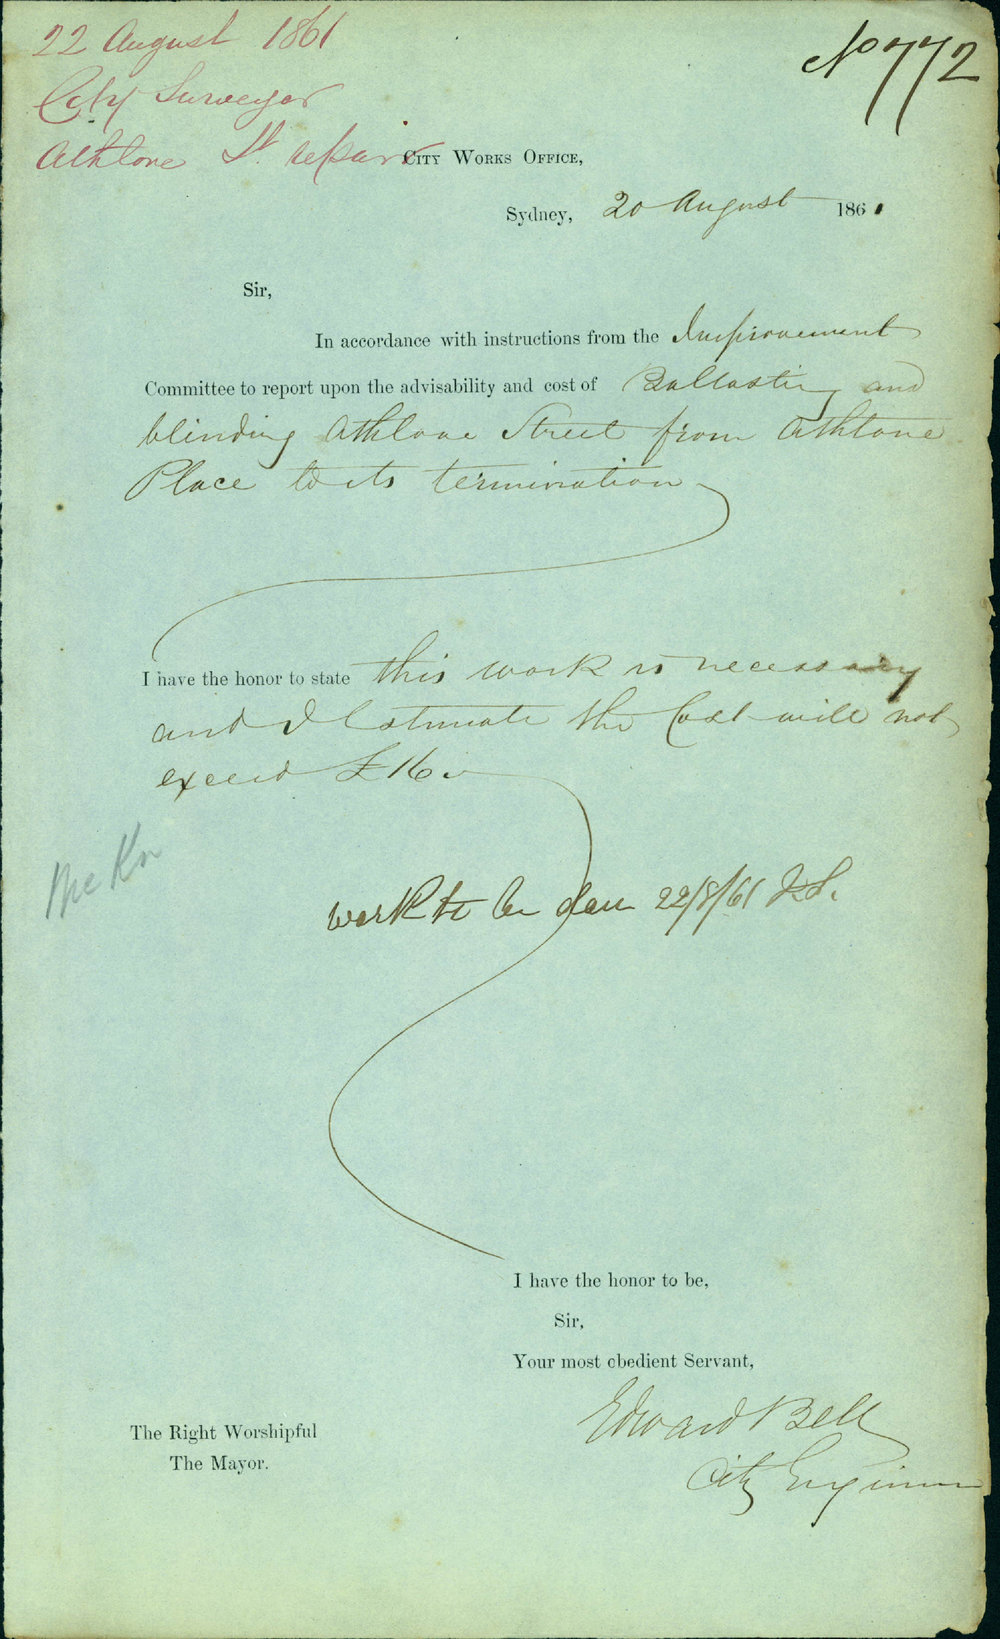 22 August 1861
City Surveyor
Athlone St. repair
No 772
City Works Office,
Sydney, 20 August 1861
Sir,
In accordance with instructions from the Improvement
Committee to report upon the advisability and cost of Ballasting and
blinding Athlone Street from Athlone
Place to its termination
I have the honor to state this work is necessary
and I Estimate the Cost will not
exceed £16
work to be done 22/8/61
I have the honor to be,
Sir,
Your most obedient Servant,
Edward Bell
City Engineer
The Right Worshipful
The Mayor.